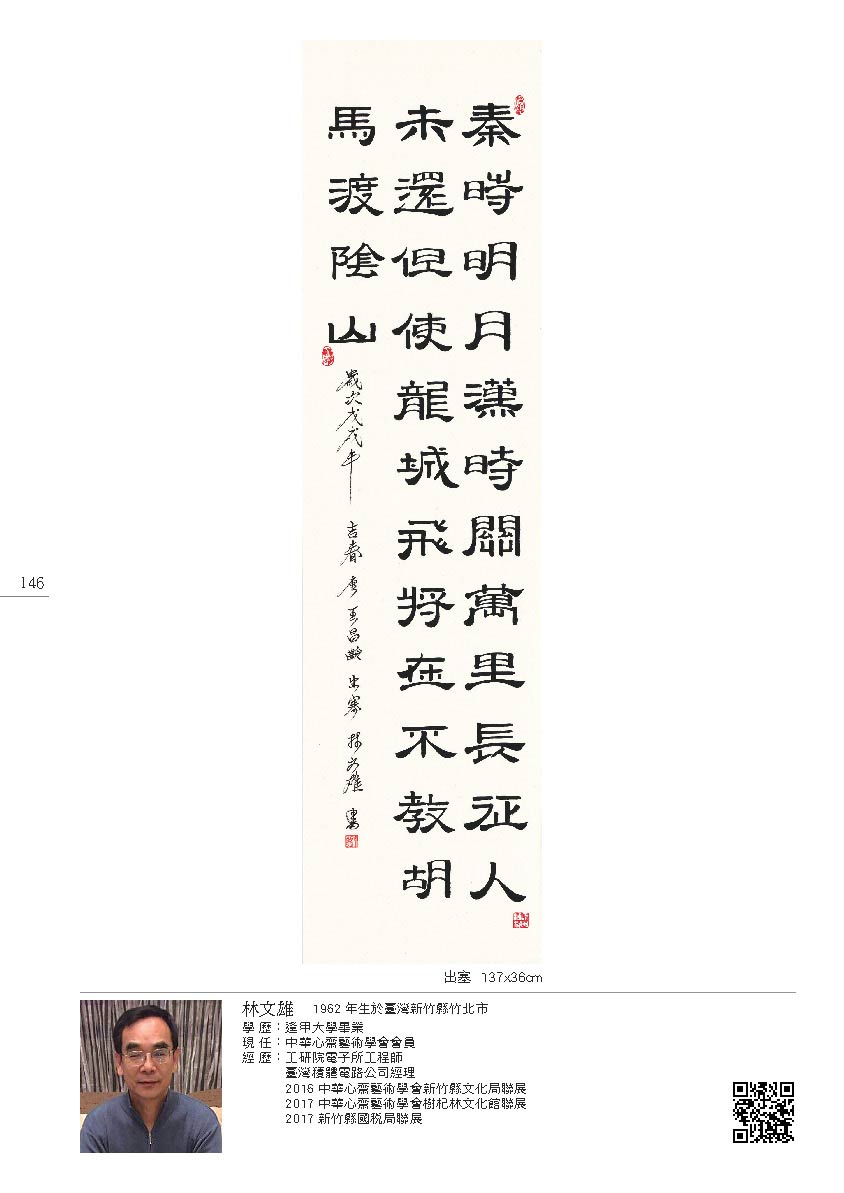 秦時明月漢時關萬里長征人
未還但使龍城飛將在不教胡
馬渡陰山
歲次戊戌年 吉春 唐 王昌齡 出塞 林文雄 書
146
出塞 137x36cm
林文雄 1962 年生於臺灣新竹縣竹北市
學 歷：逢甲大學畢業
現 任：中華心齋藝術學會會員
經 歷：工研院電子所工程師
臺灣積體電路公司經理
2016 中華心齋藝術學會新竹縣文化局聯展
2017 中華心齋藝術學會樹杞林文化館聯展
2017 新竹縣國稅局聯展